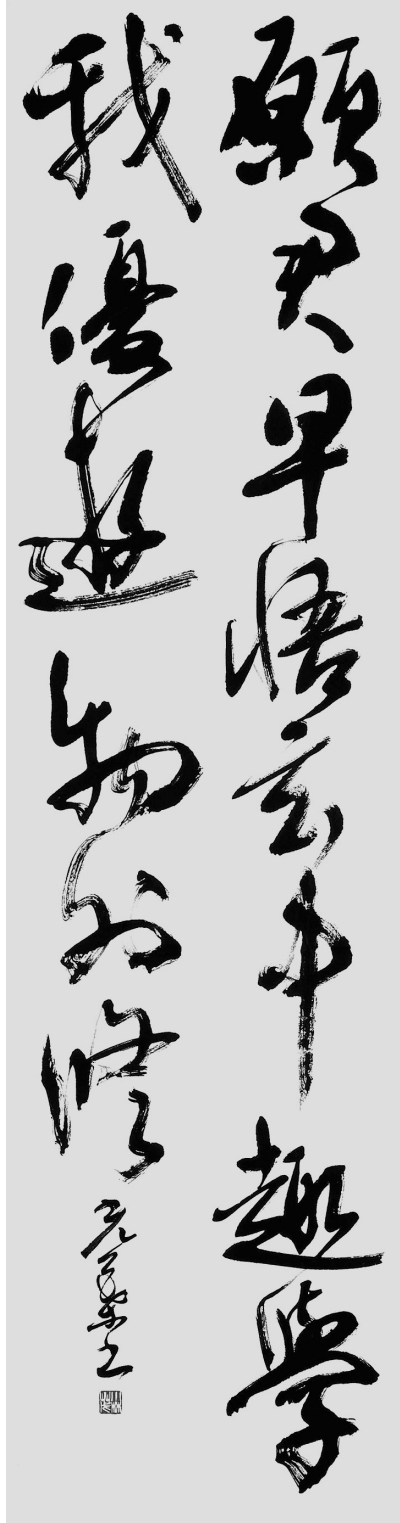 願君早悟玄中趣學
我優遊物外修